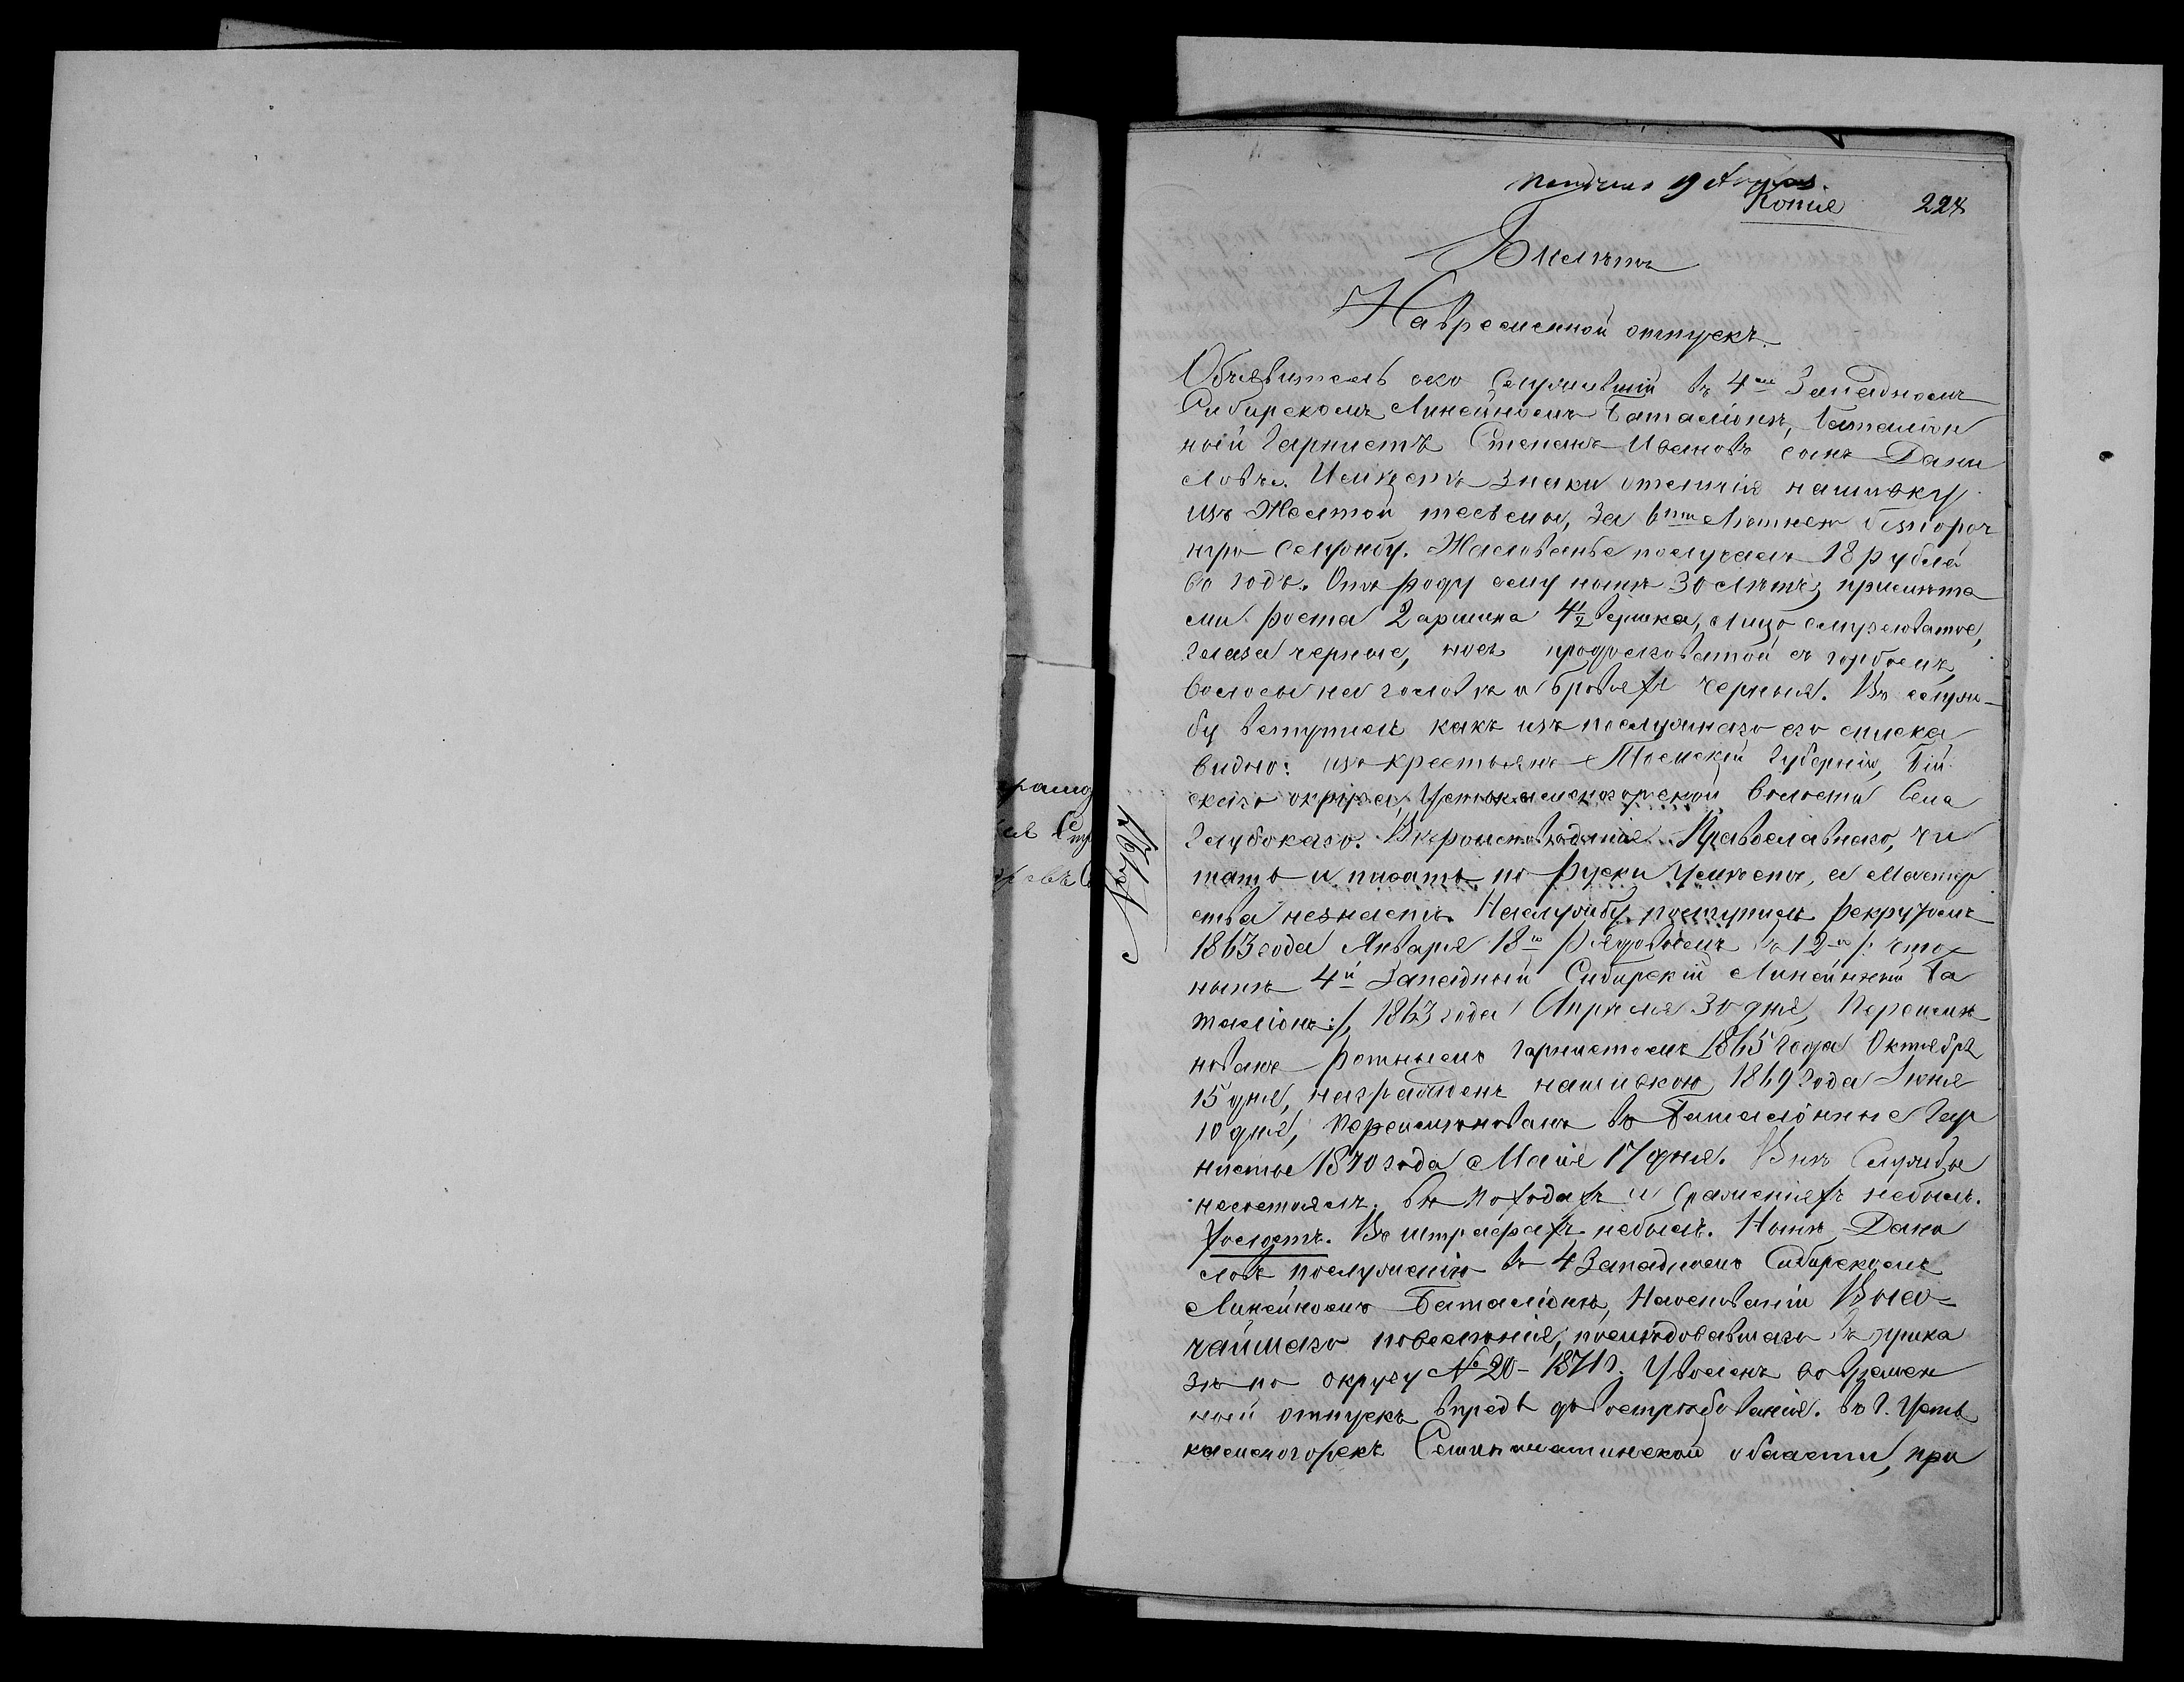 Копія
227
Билетъ
На временной отпускъ.
Объявитель сего Служившій въ 4мъ Западномъ
Сибирскомъ Линейномъ Баталіонѣ, Баталіон
ный Гарнистъ Степанъ Ивановъ сынъ Дани
ловъ. Имѣетъ Знаки отличія нашивку
изъ Желтой тесьмы, За 6ти Лѣтнею безпороч
ную Службу. Жалованье получалъ 18 рублей
въ годъ. Отъ роду ему нынѣ 30 лѣтъ, примѣта
ми: роста 2 аршина 4½ вершка, лицо смугловатое,
Глаза черные, носъ продолговатой съ горбомъ,
Волосы на головѣ и бровяхъ черныя. Въ служ-
бу вступилъ какъ изъ послужнаго его списка
видно: изъ крестьянъ Томской Губерніи, Бій
скаго округа, Устькаменогорской волости Села
Глубокаго. Вѣроисповѣданія Православнаго, чи
тать и писать по Руски Умѣетъ, а Мастер
ства незнаетъ. Наслужбу поступилъ рекрутомъ
1863 года Января 18го рядовымъ въ 12й /: что
нынѣ 4й Западный Сибирскій Линейный Ба
таліонъ :/, 1863 года Апрѣля 30 дня, Переимѣ
нованъ ротнымъ гарнистомъ 1865 года Октября
15 дня, награжденъ нашивкою 1869 года Іюня
10 дня, Переимѣнованъ въ Баталіонные Гар
нисты 1870 года Маія 17 дня. Внѣ Службы
несостоялъ. Въ Походахъ и Сраженіяхъ небылъ.
Холостъ. Въ штрафахъ небылъ. Нынѣ Дани
ловъ послужилъ въ 4 Западномъ Сибирскомъ
Линейномъ Баталіонѣ, На основаніи Высо-
чайшаго повелѣнія, послѣдовавшаго въ прика
зѣ по округу № 20 - 1871 г. Уволенъ во Времен
ной отпускъ впредь до востребованія. въ г. Усть
каменогорскъ Семипалатинской области, при